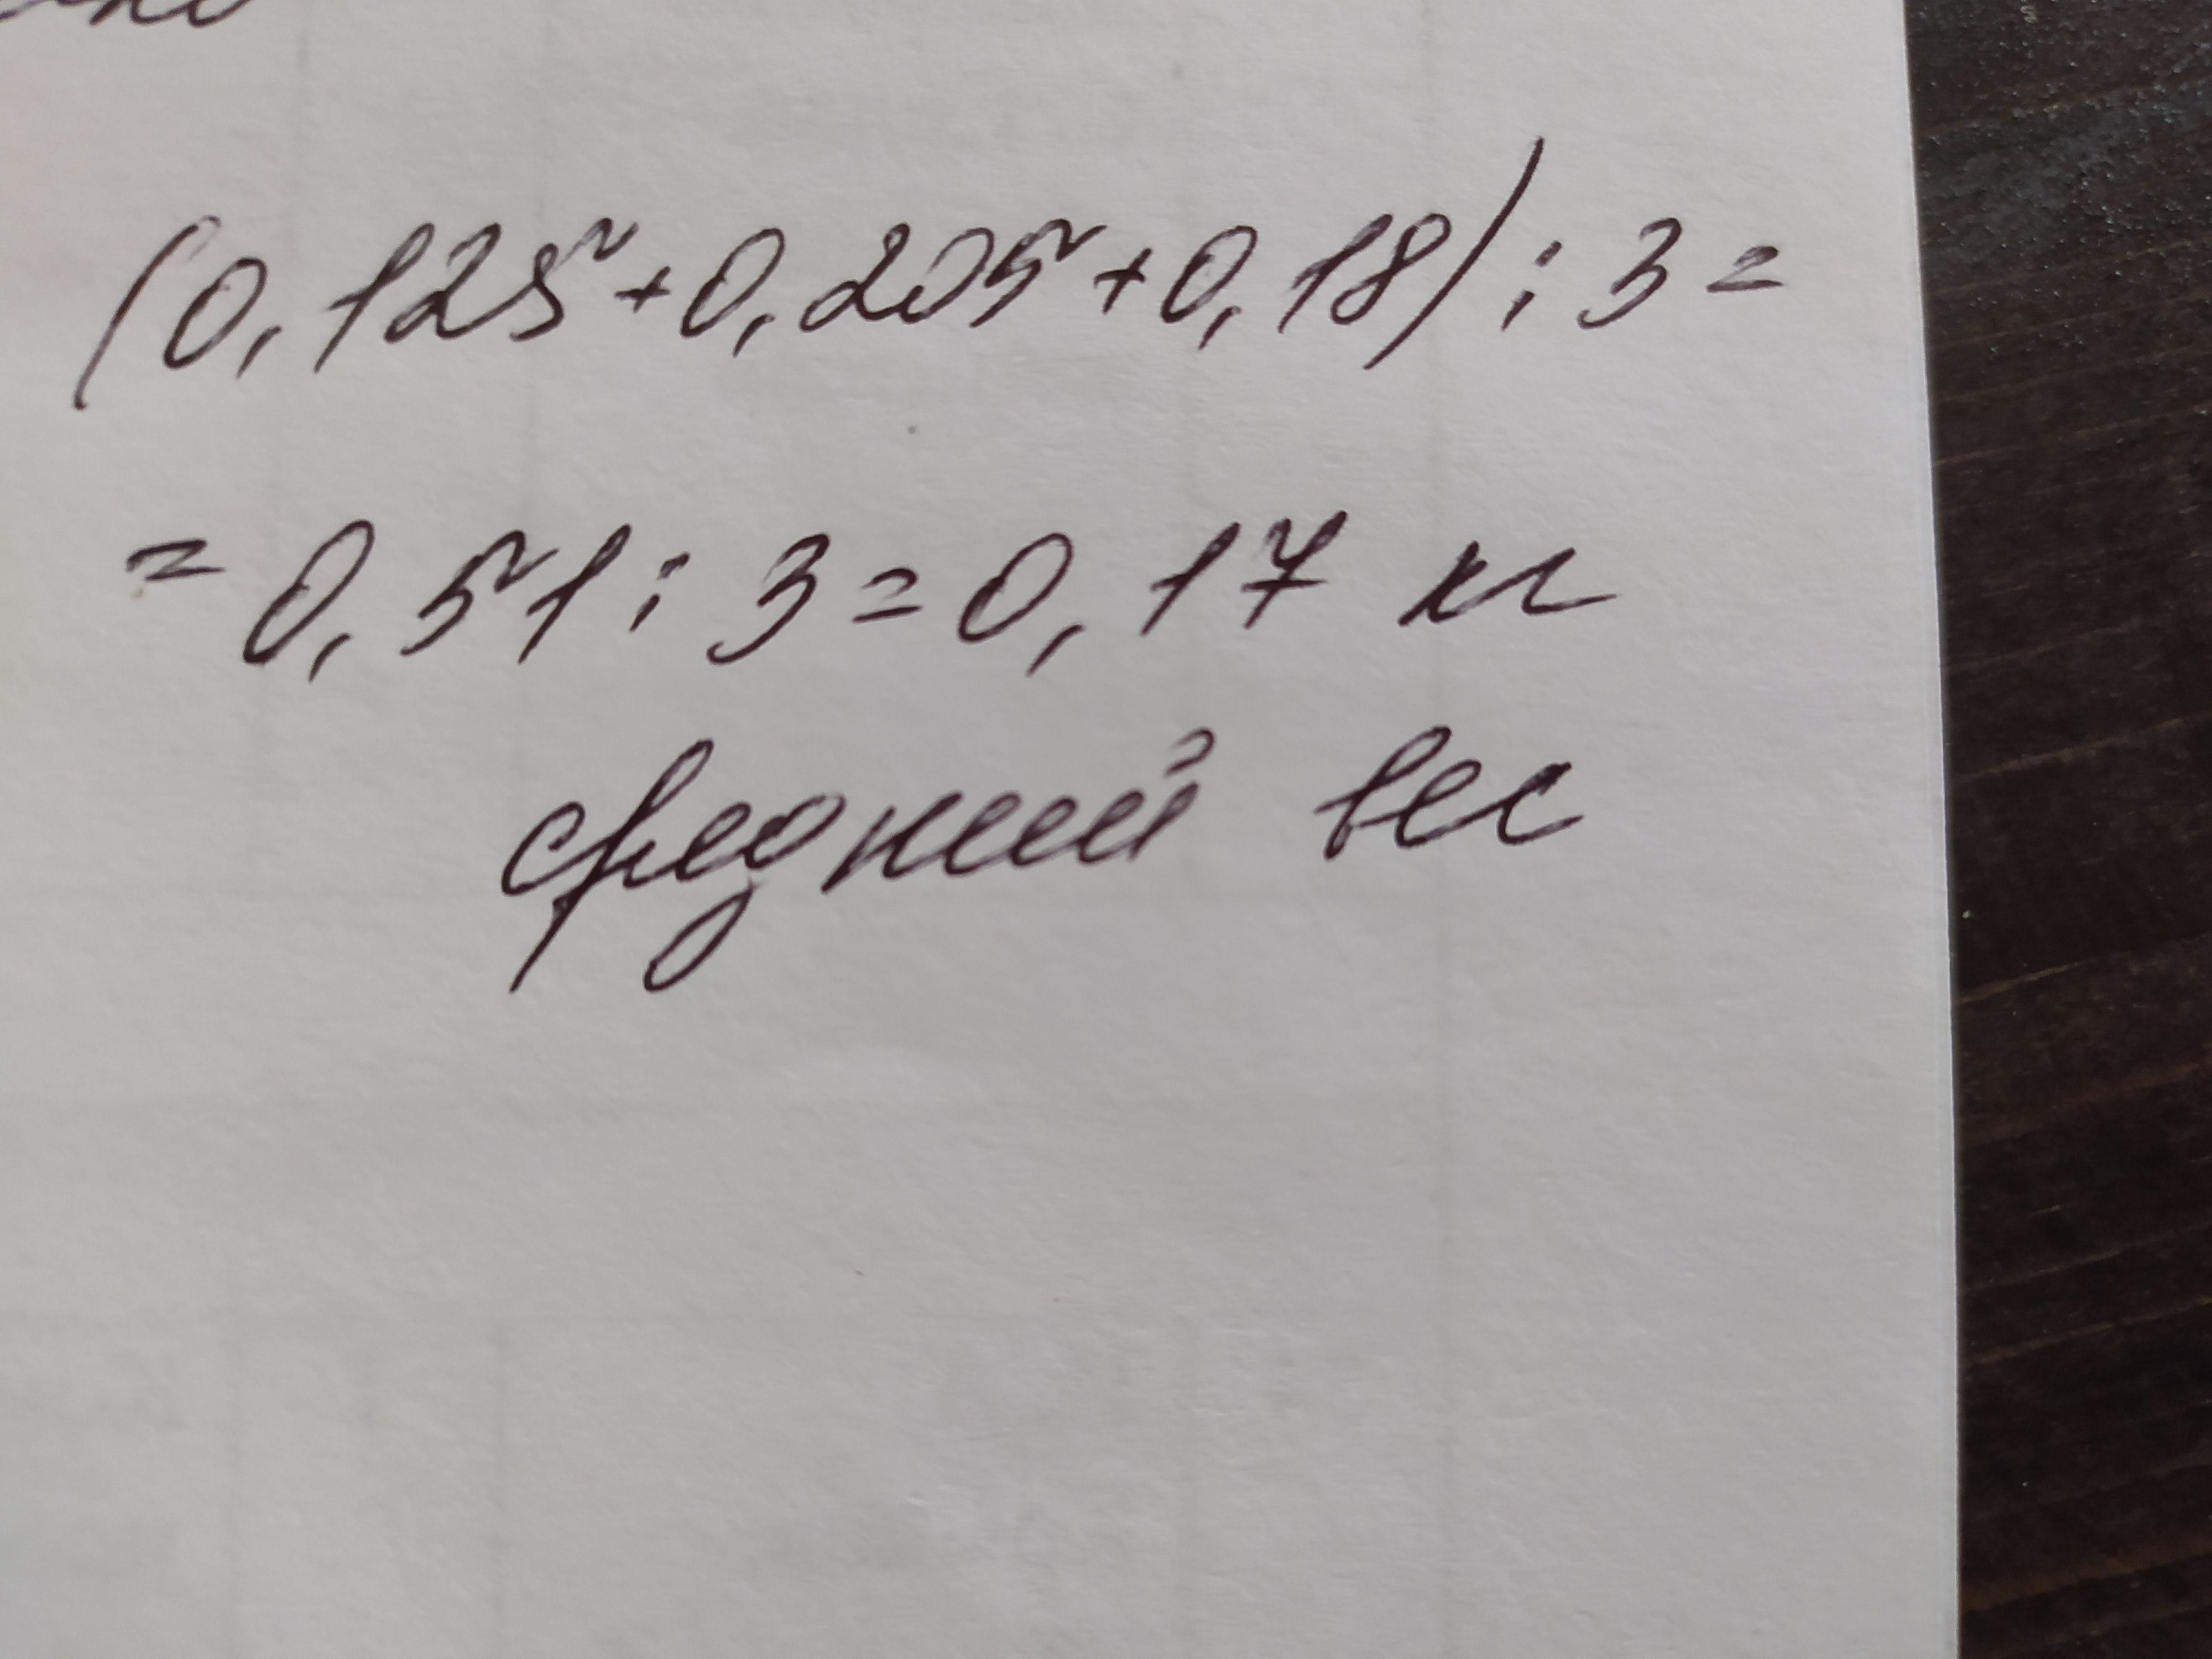 (0,125+0,205+0,18):3=
=0,51:3=0,17 кг
средний вес